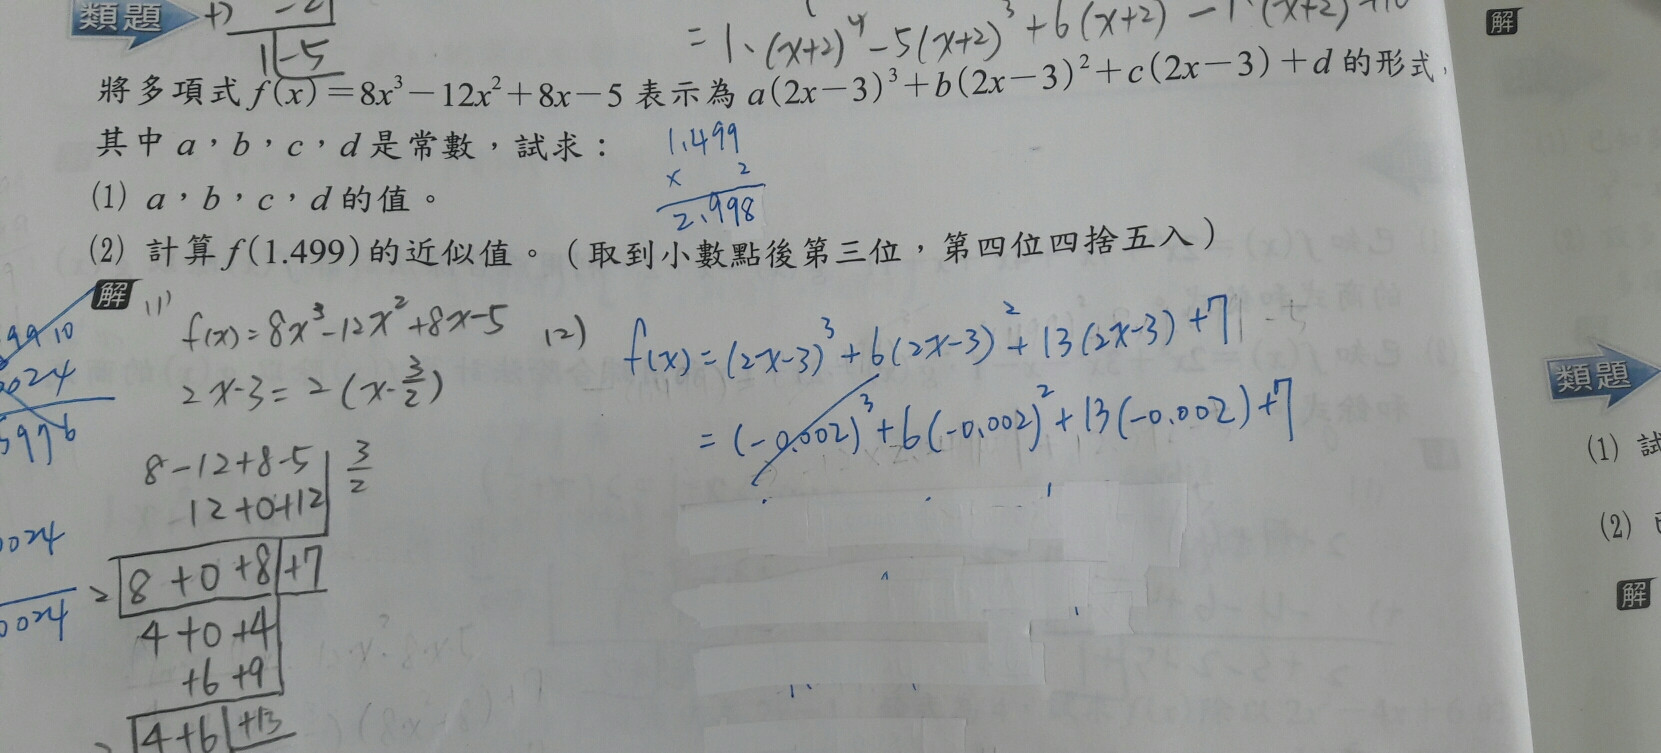 類題
+) -2
1 -5
= 1、(x+2)⁴-5(x+2)³+6(x+2) -1 (x+2)+10
解
將多項式 f(x)=8x³-12x²+8x-5 表示為 a(2x-3)³+b(2x-3)²+c(2x-3)+d 的形式，
其中 a，b，c，d 是常數，試求：
(1) a，b，c，d 的值。
1.499
x 2
2.998
(2) 計算 f(1.499) 的近似值。（取到小數點後第三位，第四位四捨五入）
解
(1)
f(x)=8x³-12x²+8x-5
2x-3=2(x-3/2)
8-12+8-5 | 3/2
12+0+12
2 8+0+8 +7
4+0+4
+6+9
4+6 +13
(2)
f(x)=(2x-3)³+6(2x-3)²+13(2x-3)+7
=(-0.002)³+6(-0.002)²+13(-0.002)+7
9910
0024
5996
0024
0024
類題
(1) 試
(2)
解